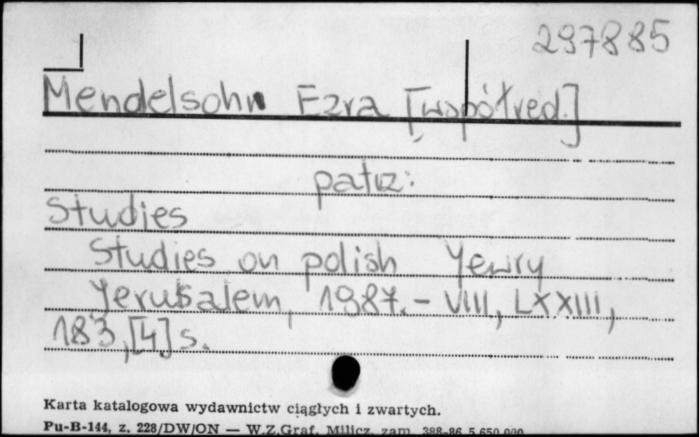 297885
Mendelsohn Ezra [współred.]
patrz:
Studies
Studies on polish Yewry
Yerusalem, 1987. - VIII, LXXIII,
183, [4] s.
Karta katalogowa wydawnictw ciągłych i zwartych.
Pu-B-144, z. 228/DW/ON — W.Z.Graf. Milicz, zam. 388-86 5.650.000